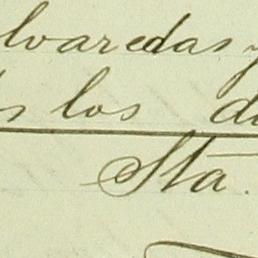 lvaredas y
s los d
Sta.